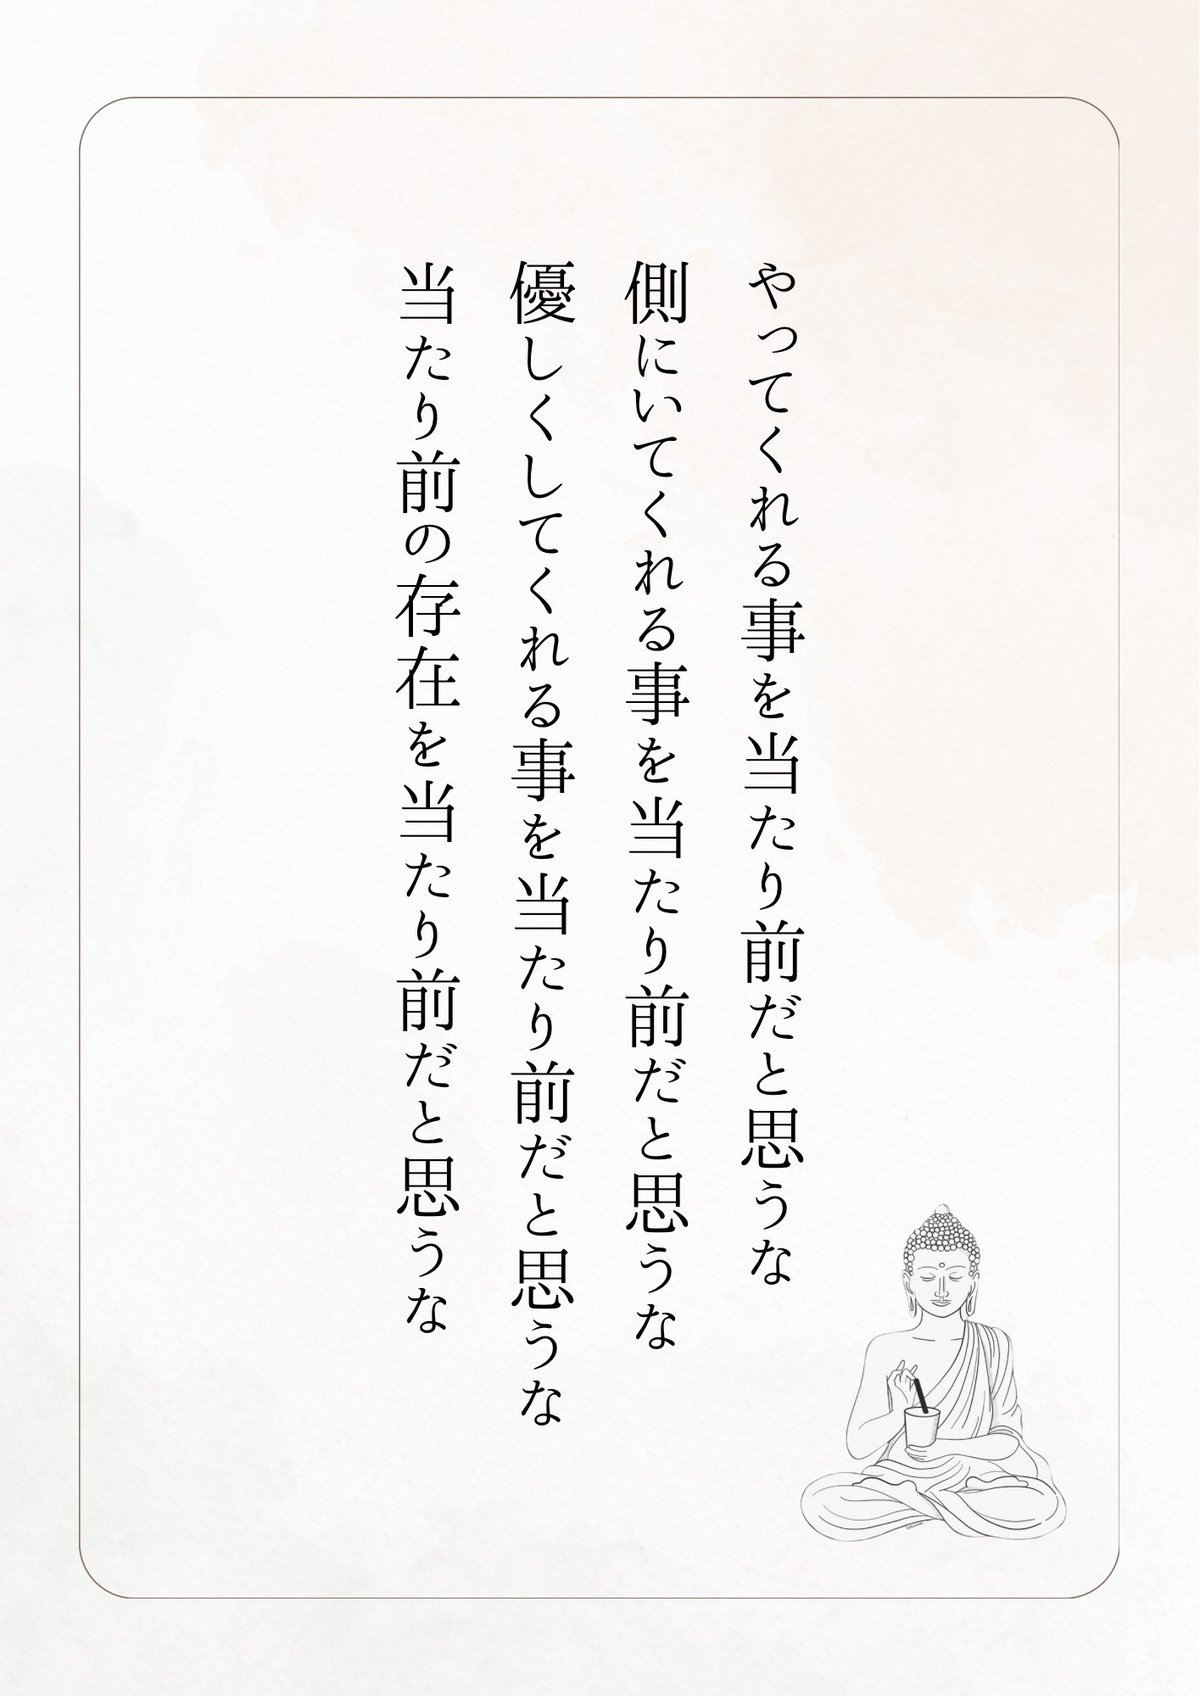 やってくれる事を当たり前だと思うな
側にいてくれる事を当たり前だと思うな
優しくしてくれる事を当たり前だと思うな
当たり前の存在を当たり前だと思うな